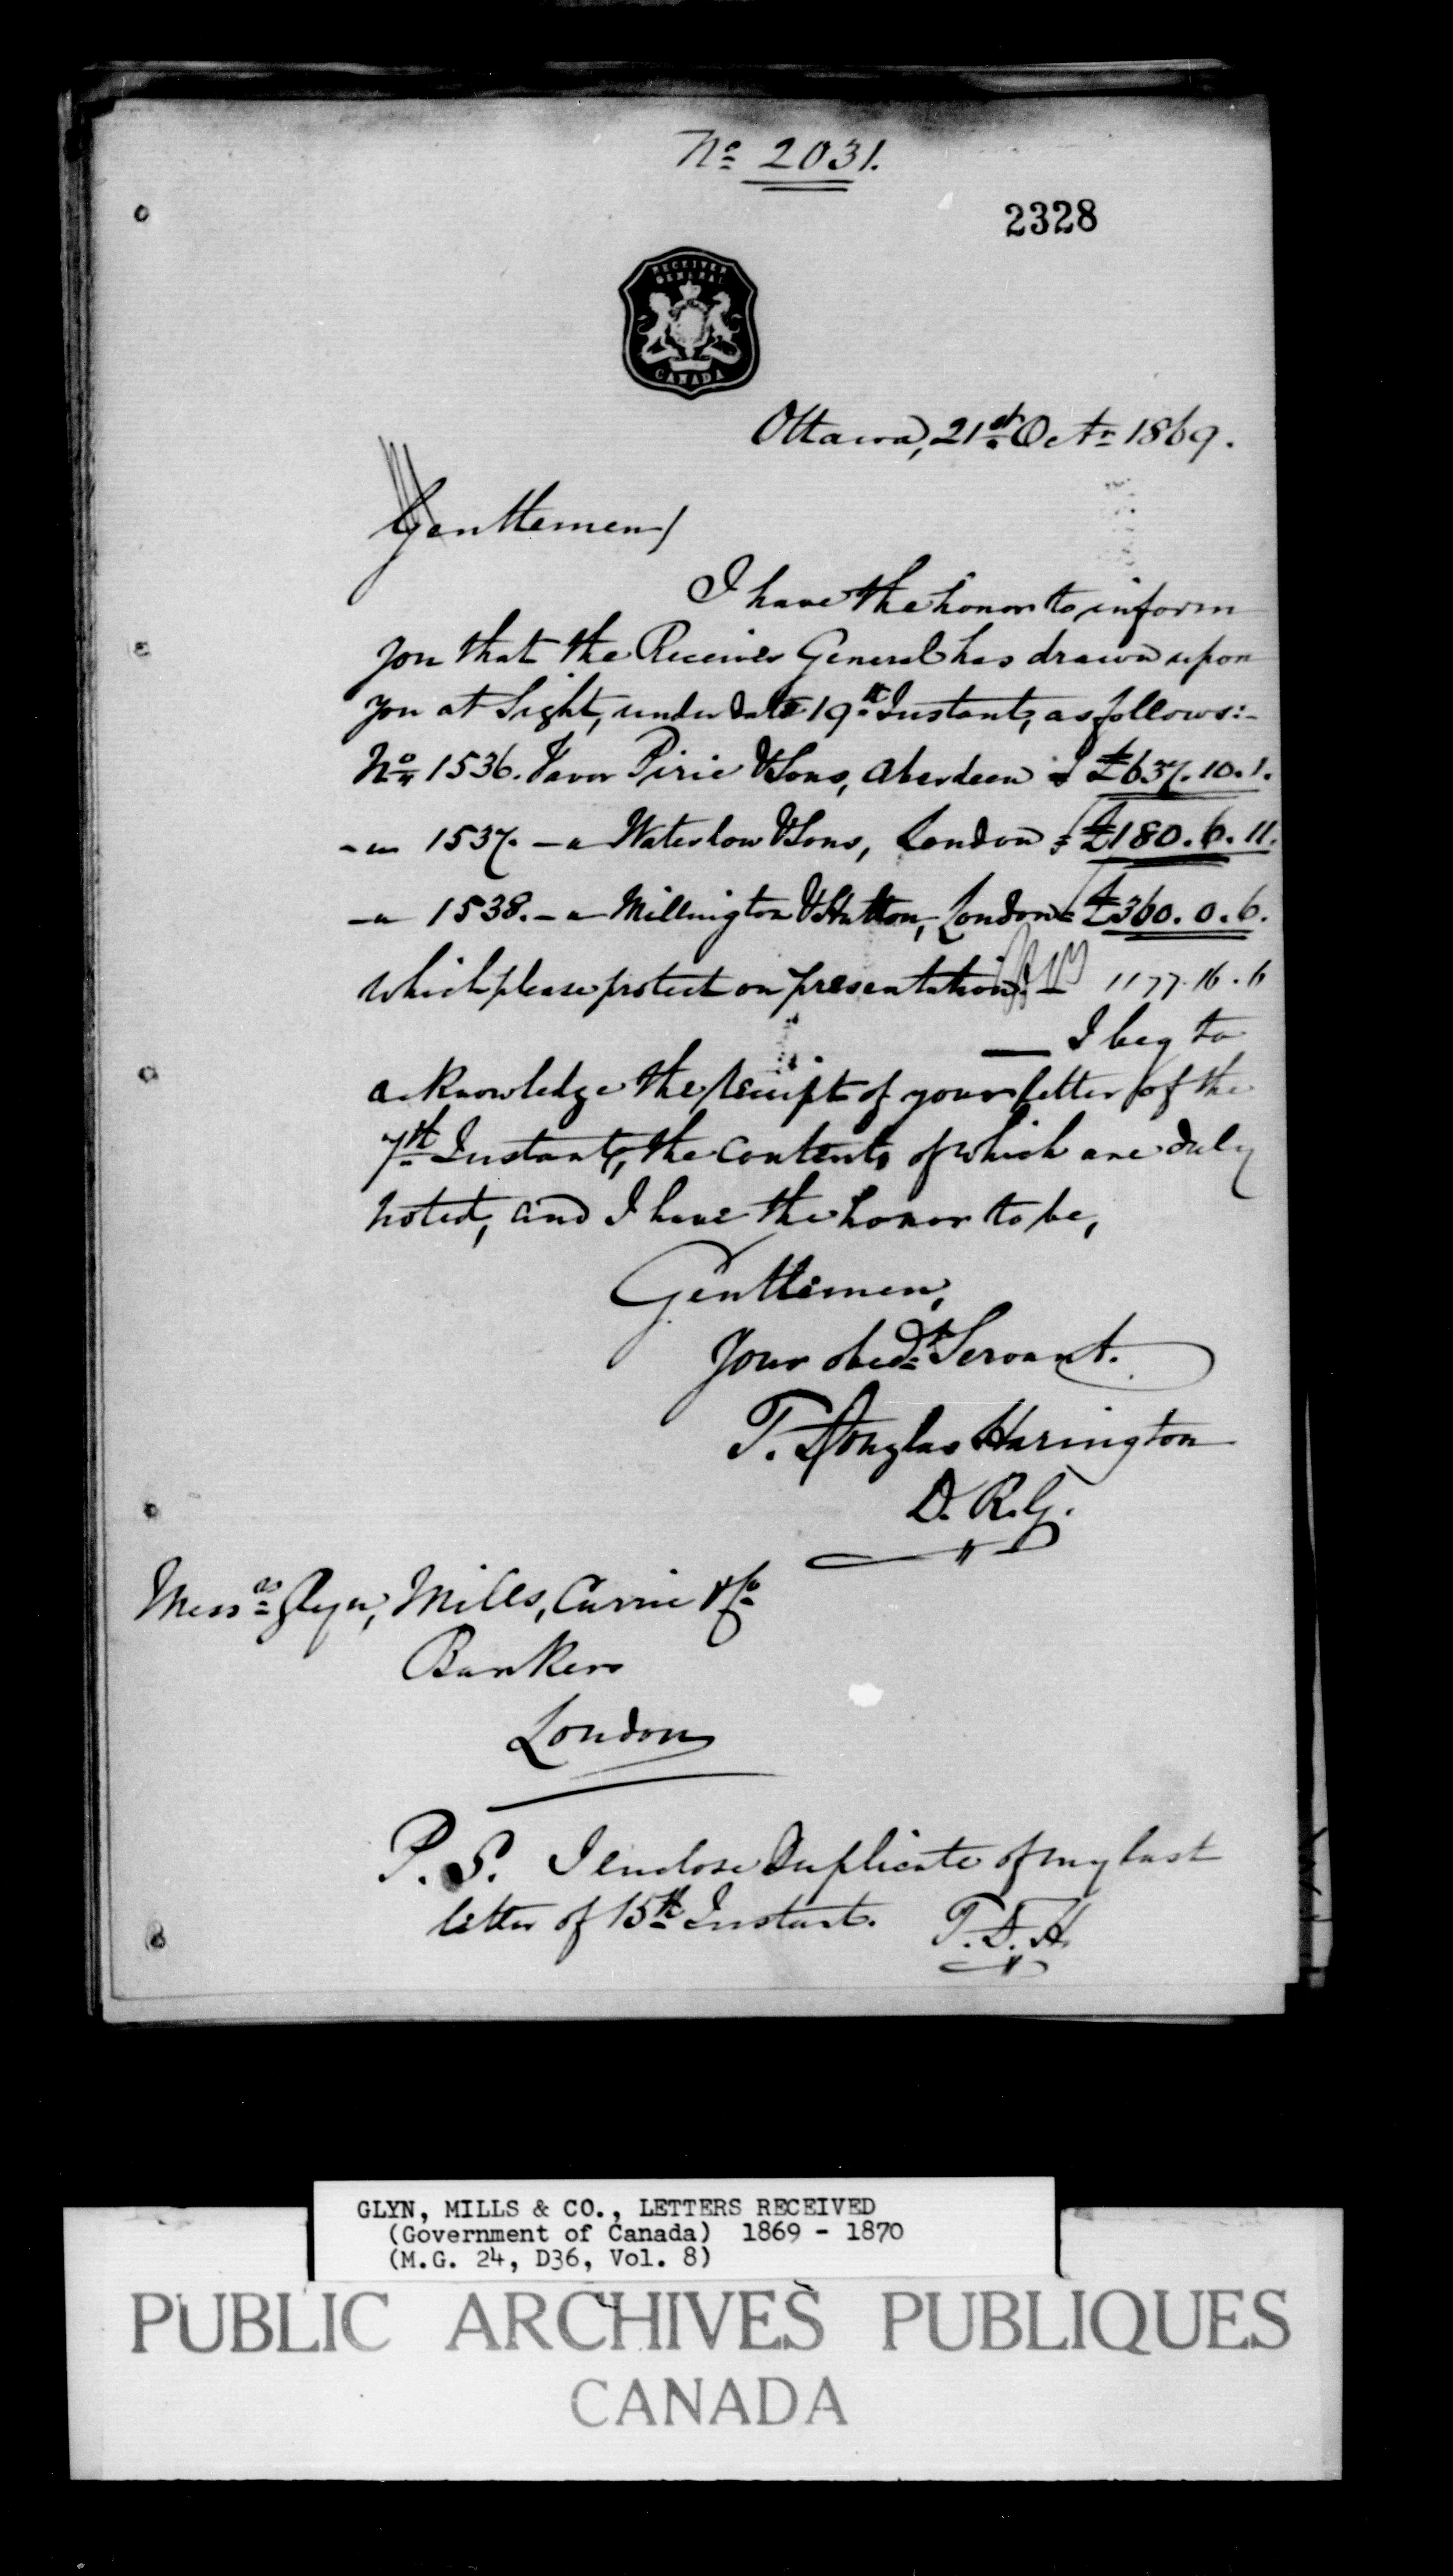 No 2031.
2328
RECEIVER
GENERAL
CANADA
Ottawa, 21st Octr 1869.
Gentlemen,
I have the honor to inform
you that the Receiver General has drawn upon
you at Sight, under date 19th Instant, as follows:-
No 1536. Favor Pirie & Sons, Aberdeen £637.10.1.
-"- 1537. -"- Waterlow & Sons, London £180.6.11.
-"- 1538. -"- Millington & Hutton, London £360.0.6.
which please protect on presentation. 1177.16.6
— I beg to
acknowledge the receipt of your letter of the
7th Instant, the contents of which are duly
noted, and I have the honor to be,
Gentlemen,
Your obedt Servant.
T. Douglas Harington
D. R. G.
Messrs Glyn, Mills, Currie & Co
Bankers
London
P. S. I enclose Duplicate of my last
letter of 15th Instant. T. D. H.
GLYN, MILLS & CO., LETTERS RECEIVED
(Government of Canada) 1869 - 1870
(M.G. 24, D36, Vol. 8)
PUBLIC ARCHIVES PUBLIQUES
CANADA